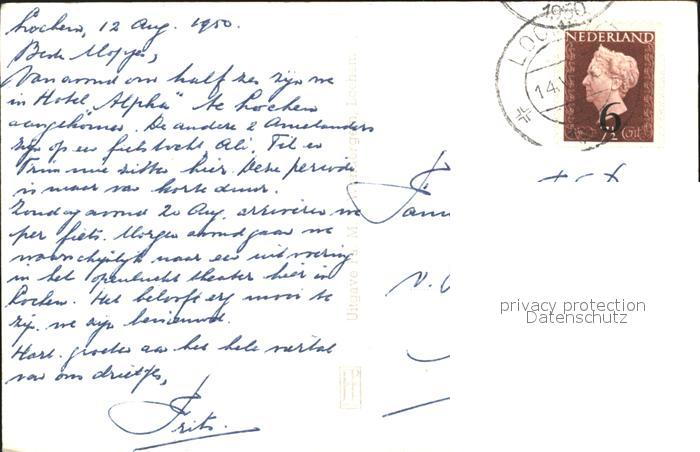 Lochem, 12 Aug. 1950.
Beste Mopjes,
Vanavond om half zes zijn we
in Hotel "Alpha" te Lochem
aangekomen. De andere 2 Amelanders
zijn op een fietstocht. Ali, Til en
Truus zitten hier. Deze periode
is maar van korte duur.
Zondagavond 20 Aug. arriveren we
per fiets. Morgen avond gaan we
waarschijnlijk naar een uitvoering
in het openlucht theater hier in
Lochem. Het belooft erg mooi te
zijn. we zijn benieuwd.
Hart. groeten aan het hele
van ons drietjes,
Frits.
Uitgave Fa. M. Lochem.
Fam
NEDERLAND
6
7½ Ct
1950
LOC
14.
privacy protection
Datenschutz